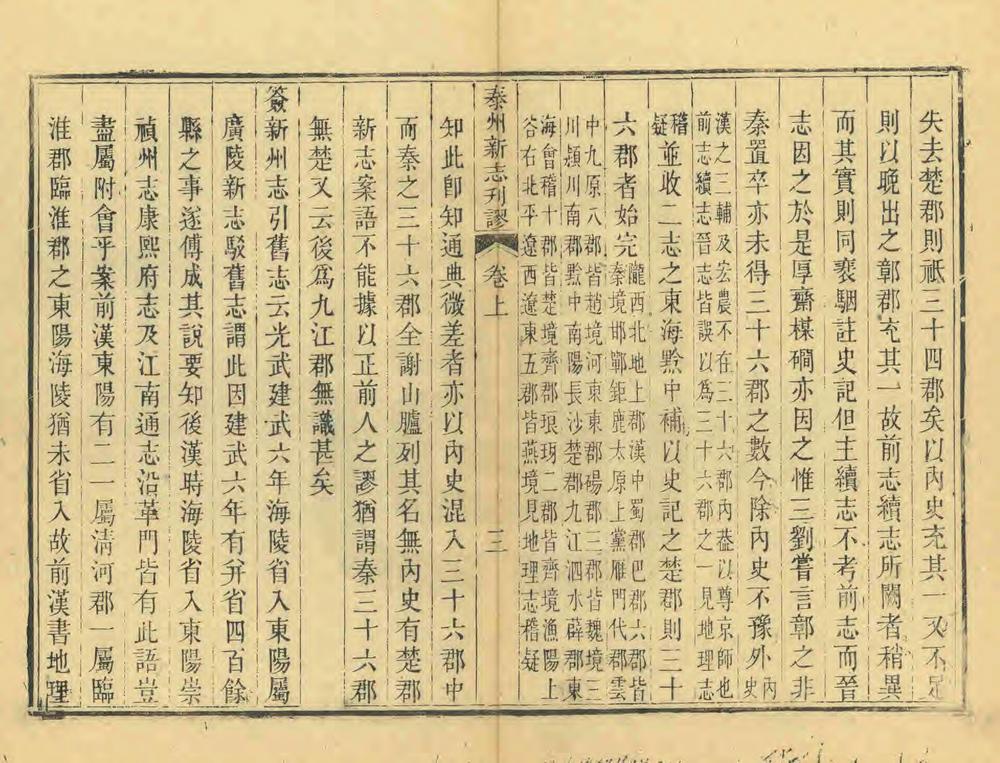 失去楚郡則祗三十四郡矣以內史充其一又不足
則以晚出之彰郡充其一故前志續志所闕者稍異
而其實則同裴駰註史記但主續志不考前志而晉
志因之於是厚齋楳磵亦因之惟三劉嘗言彰之非
秦置卒亦未得三十六郡之數今除內史不豫外內史
漢之三輔及宏農不在三十六郡內葢以尊京師也
前志續志晉志皆誤以爲三十六郡之一見地理志
稽疑並收二志之東海黔中補以史記之楚郡則三十
六郡者始完隴西北地上郡漢中蜀郡巴郡六郡皆
秦境邯鄲鉅鹿太原上黨雁門代郡雲
中九原八郡皆趙境河東東郡碭郡三郡皆魏境三
川潁川南郡黔中南陽長沙楚郡九江泗水薛郡東
海會稽十郡皆楚境齊郡琅玡二郡皆齊境漁陽上
谷右北平遼西遼東五郡皆燕境見地理志稽疑
泰州新志刊謬 卷上 三
知此卽知通典微差者亦以內史混入三十六郡中
而秦之三十六郡全謝山臚列其名無內史有楚郡
新志案語不能據以正前人之謬猶謂秦三十六郡
無楚又云後爲九江郡無識甚矣
簽新州志引舊志云光武建武六年海陵省入東陽屬
廣陵新志駁舊志謂此因建武六年有幷省四百餘
縣之事遂傅成其說要知後漢時海陵省入東陽崇
禎州志康熙府志及江南通志沿革門皆有此語豈
盡屬附會乎案前漢東陽有二一屬淸河郡一屬臨
淮郡臨淮郡之東陽海陵猶未省入故前漢書地理